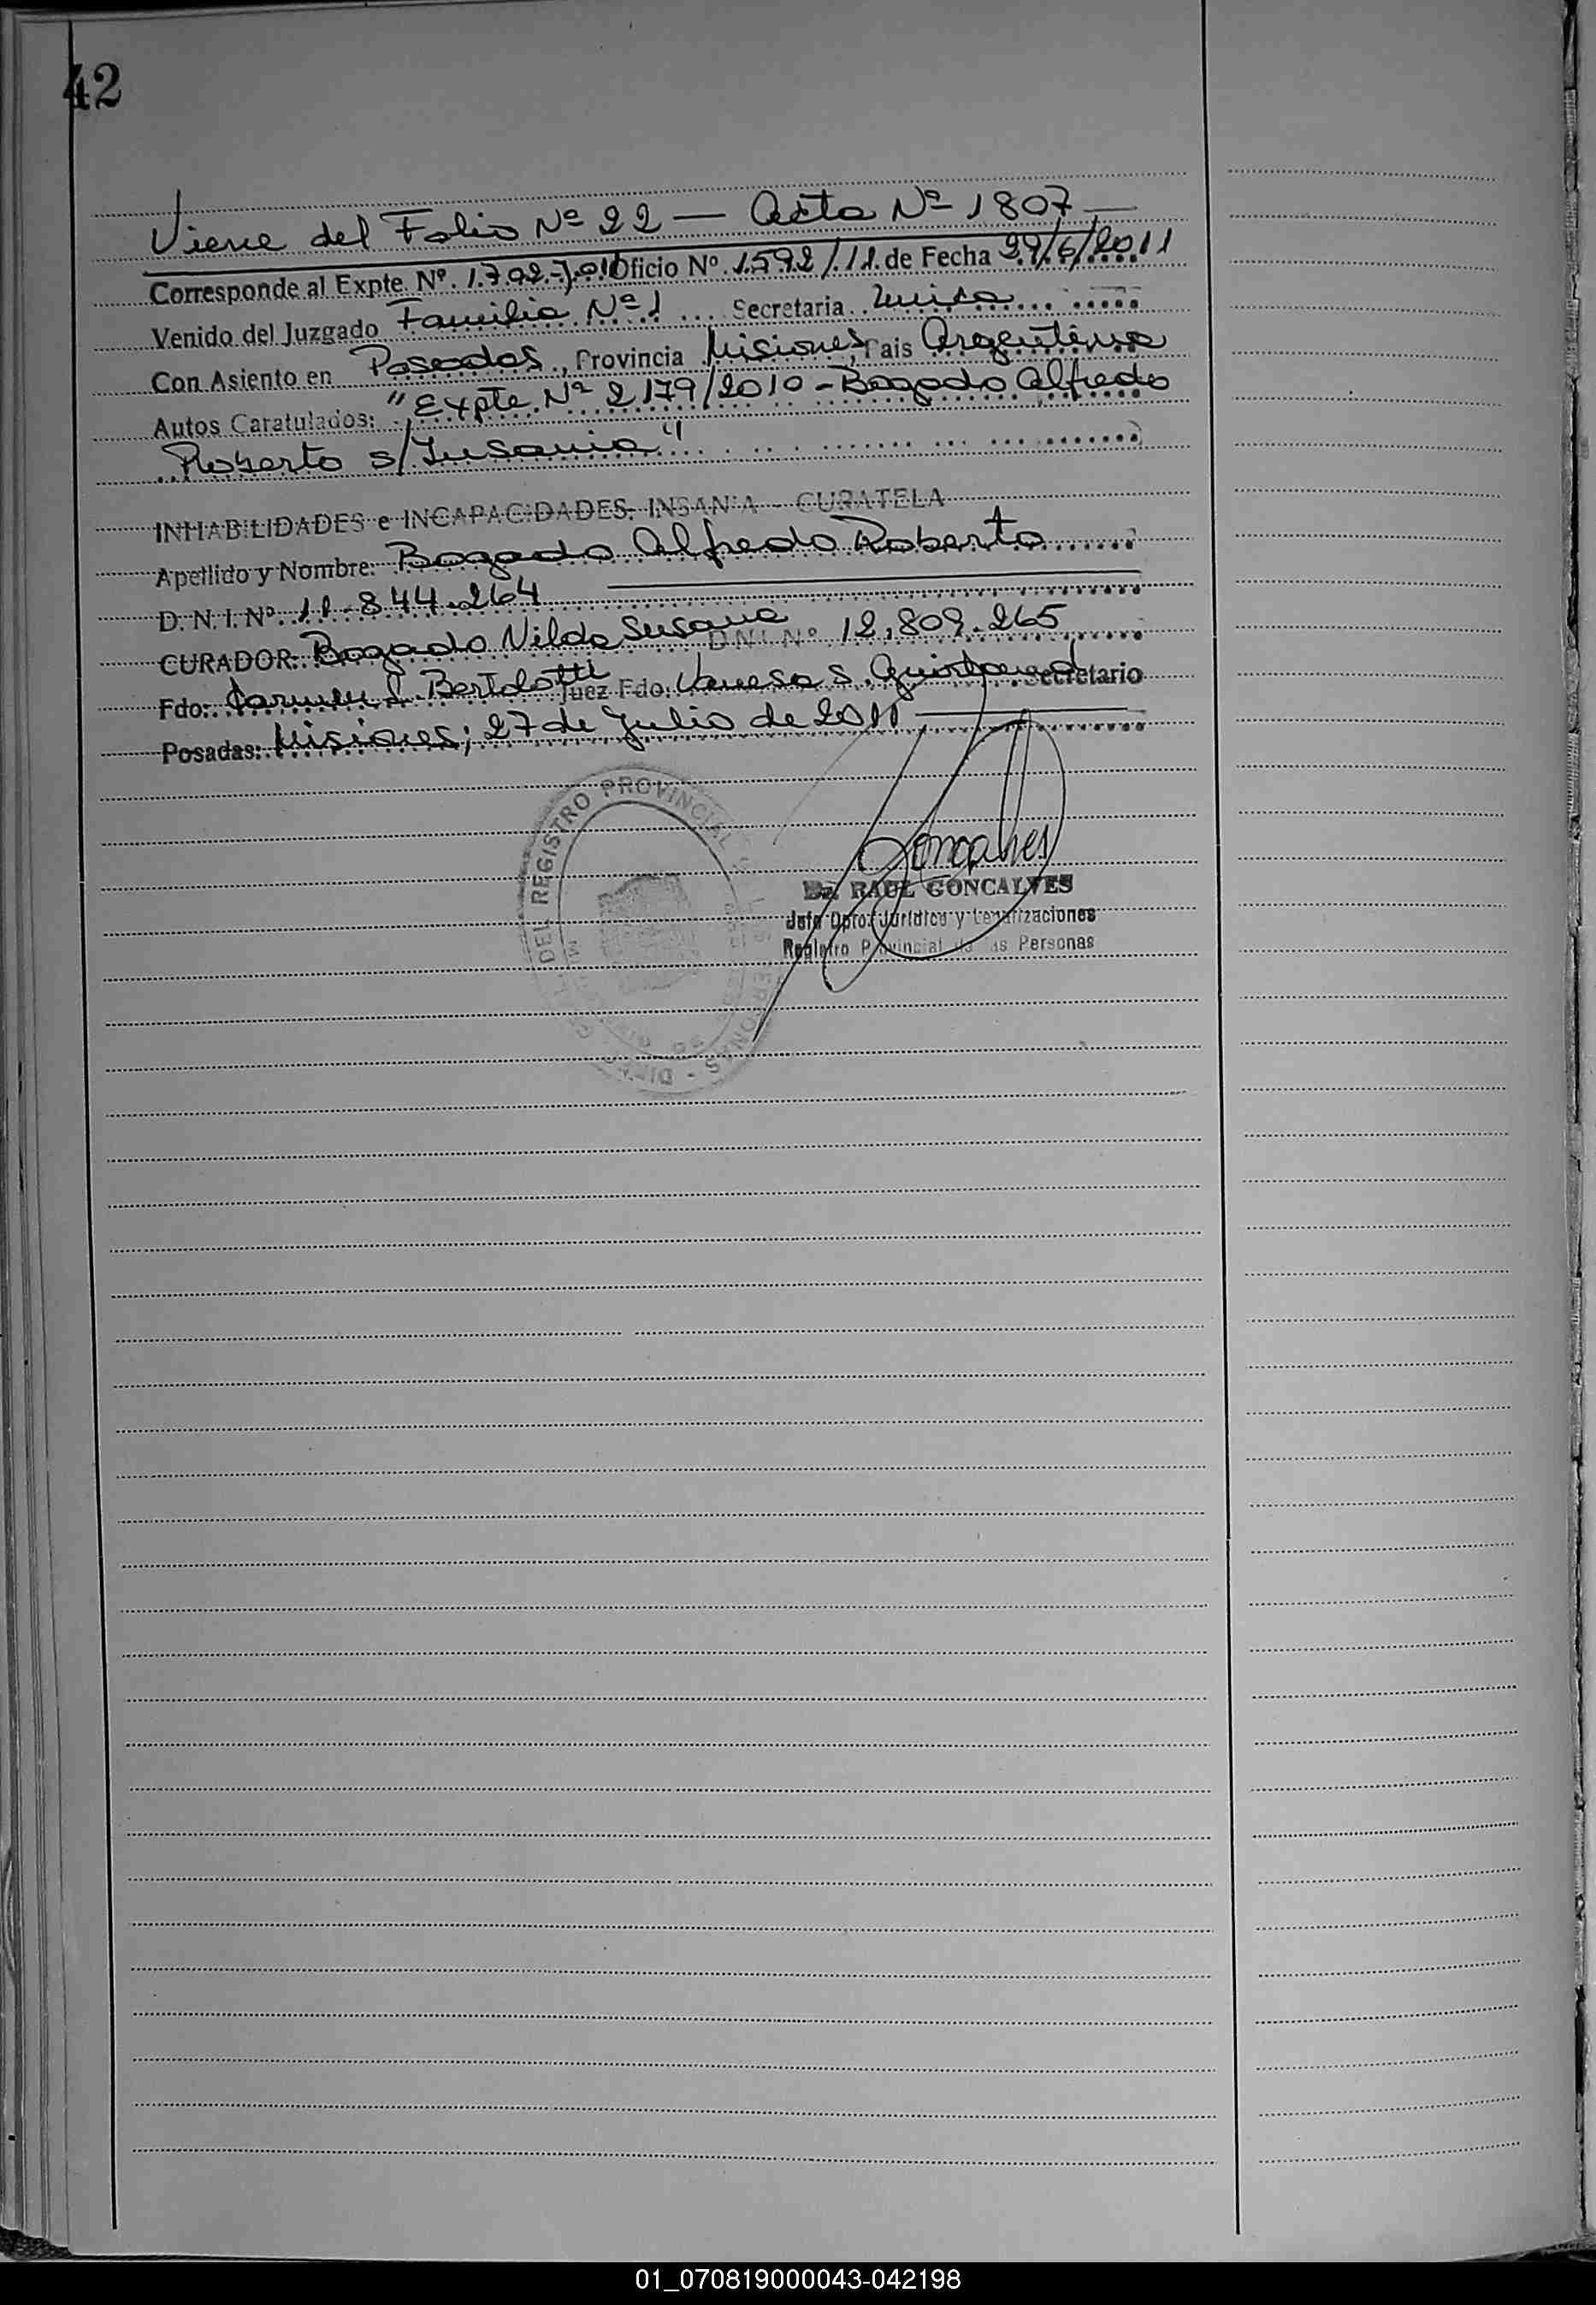 42
Viene del Folio Nº 22 — Acta Nº 1807 —
Corresponde al Expte. Nº. 1792-J-011 Oficio Nº. 1592/11. de Fecha 29/6/2011
Venido del Juzgado Familia Nº 1 ... Secretaria. Unica
Con Asiento en Posadas, Provincia Misiones, Pais Argentina
Autos Caratulados: "Expte. Nº 2179/2010 - Bogado Alfredo
Roberto s/Insania"
INHABILIDADES e INCAPACIDADES, INSANIA - CURATELA
Apellido y Nombre: Bogado Alfredo Roberto
D. N. I. Nº 11.844.264
CURADOR: Bogado Nilda Susana D N I Nº 12.809.265
Fdo: Carmen L. Bertolotti Juez Fdo: Vanesa S. Secretario
Posadas: Misiones; 27 de Julio de 2011
Goncalves
Dr. RAUL GONCALVES
Jefe Dpto. Jurídico y Legalizaciones
Registro Provincial de las Personas
DEL REGISTRO PROVINCIAL
01_070819000043-042198